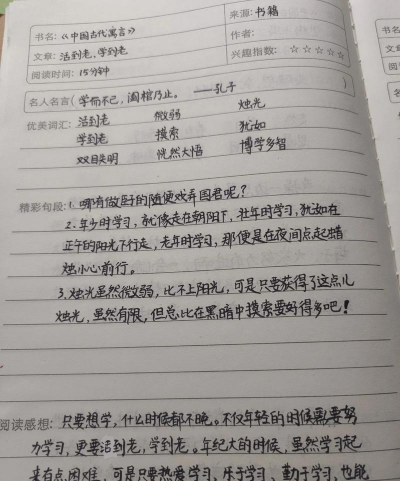 书名:《中国古代寓言》
来源:书籍
文章:活到老,学到老
作者:
阅读时间:15分钟
兴趣指数:☆☆☆☆☆
名人名言(学而不已,阖棺乃止。 ——孔子 )
优美词汇:活到老 微弱 烛光
学到老 摸索 犹如
双目失明 恍然大悟 博学多智
精彩句段:1.哪有做臣子的随便戏弄国君呢?
2.年少时学习,就像走在朝阳下,壮年时学习,犹如在
正午的阳光下行走,老年时学习,那便是在夜间点起蜡
烛小心前行。
3.烛光虽然微弱,比不上阳光,可是只要获得了这点儿
烛光,虽然有限,但总比在黑暗中摸索要好得多吧!
阅读感想:只要想学,什么时候都不晚。不仅年轻的时候需要努
力学习,更要活到老,学到老。年纪大的时候,虽然学习起
来有点困难,可是只要热爱学习、乐于学习、勤于学习,也能
书名
文章
阅